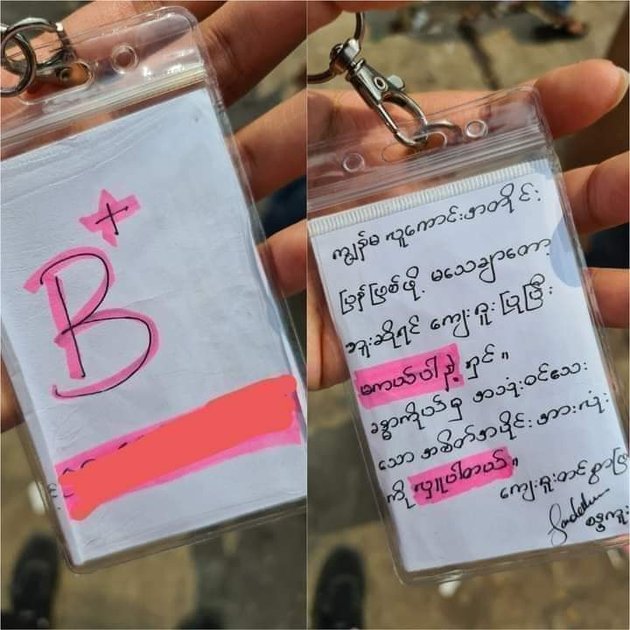 B+
ကျွန်မ လူကောင်းအတိုင်း
ပြန်ဖြစ်ဖို့ မသေချာတော့
ဘူးဆိုရင် ကျေးဇူးပြုပြီး
မကယ်ပါနဲ့ ရှင်။
ခန္ဓာကိုယ်မှ အသုံးဝင်သေး
သော အစိတ်အပိုင်းအားလုံး
ကို လှူပါတယ်။
ကျေးဇူးတင်စွာဖြင့်